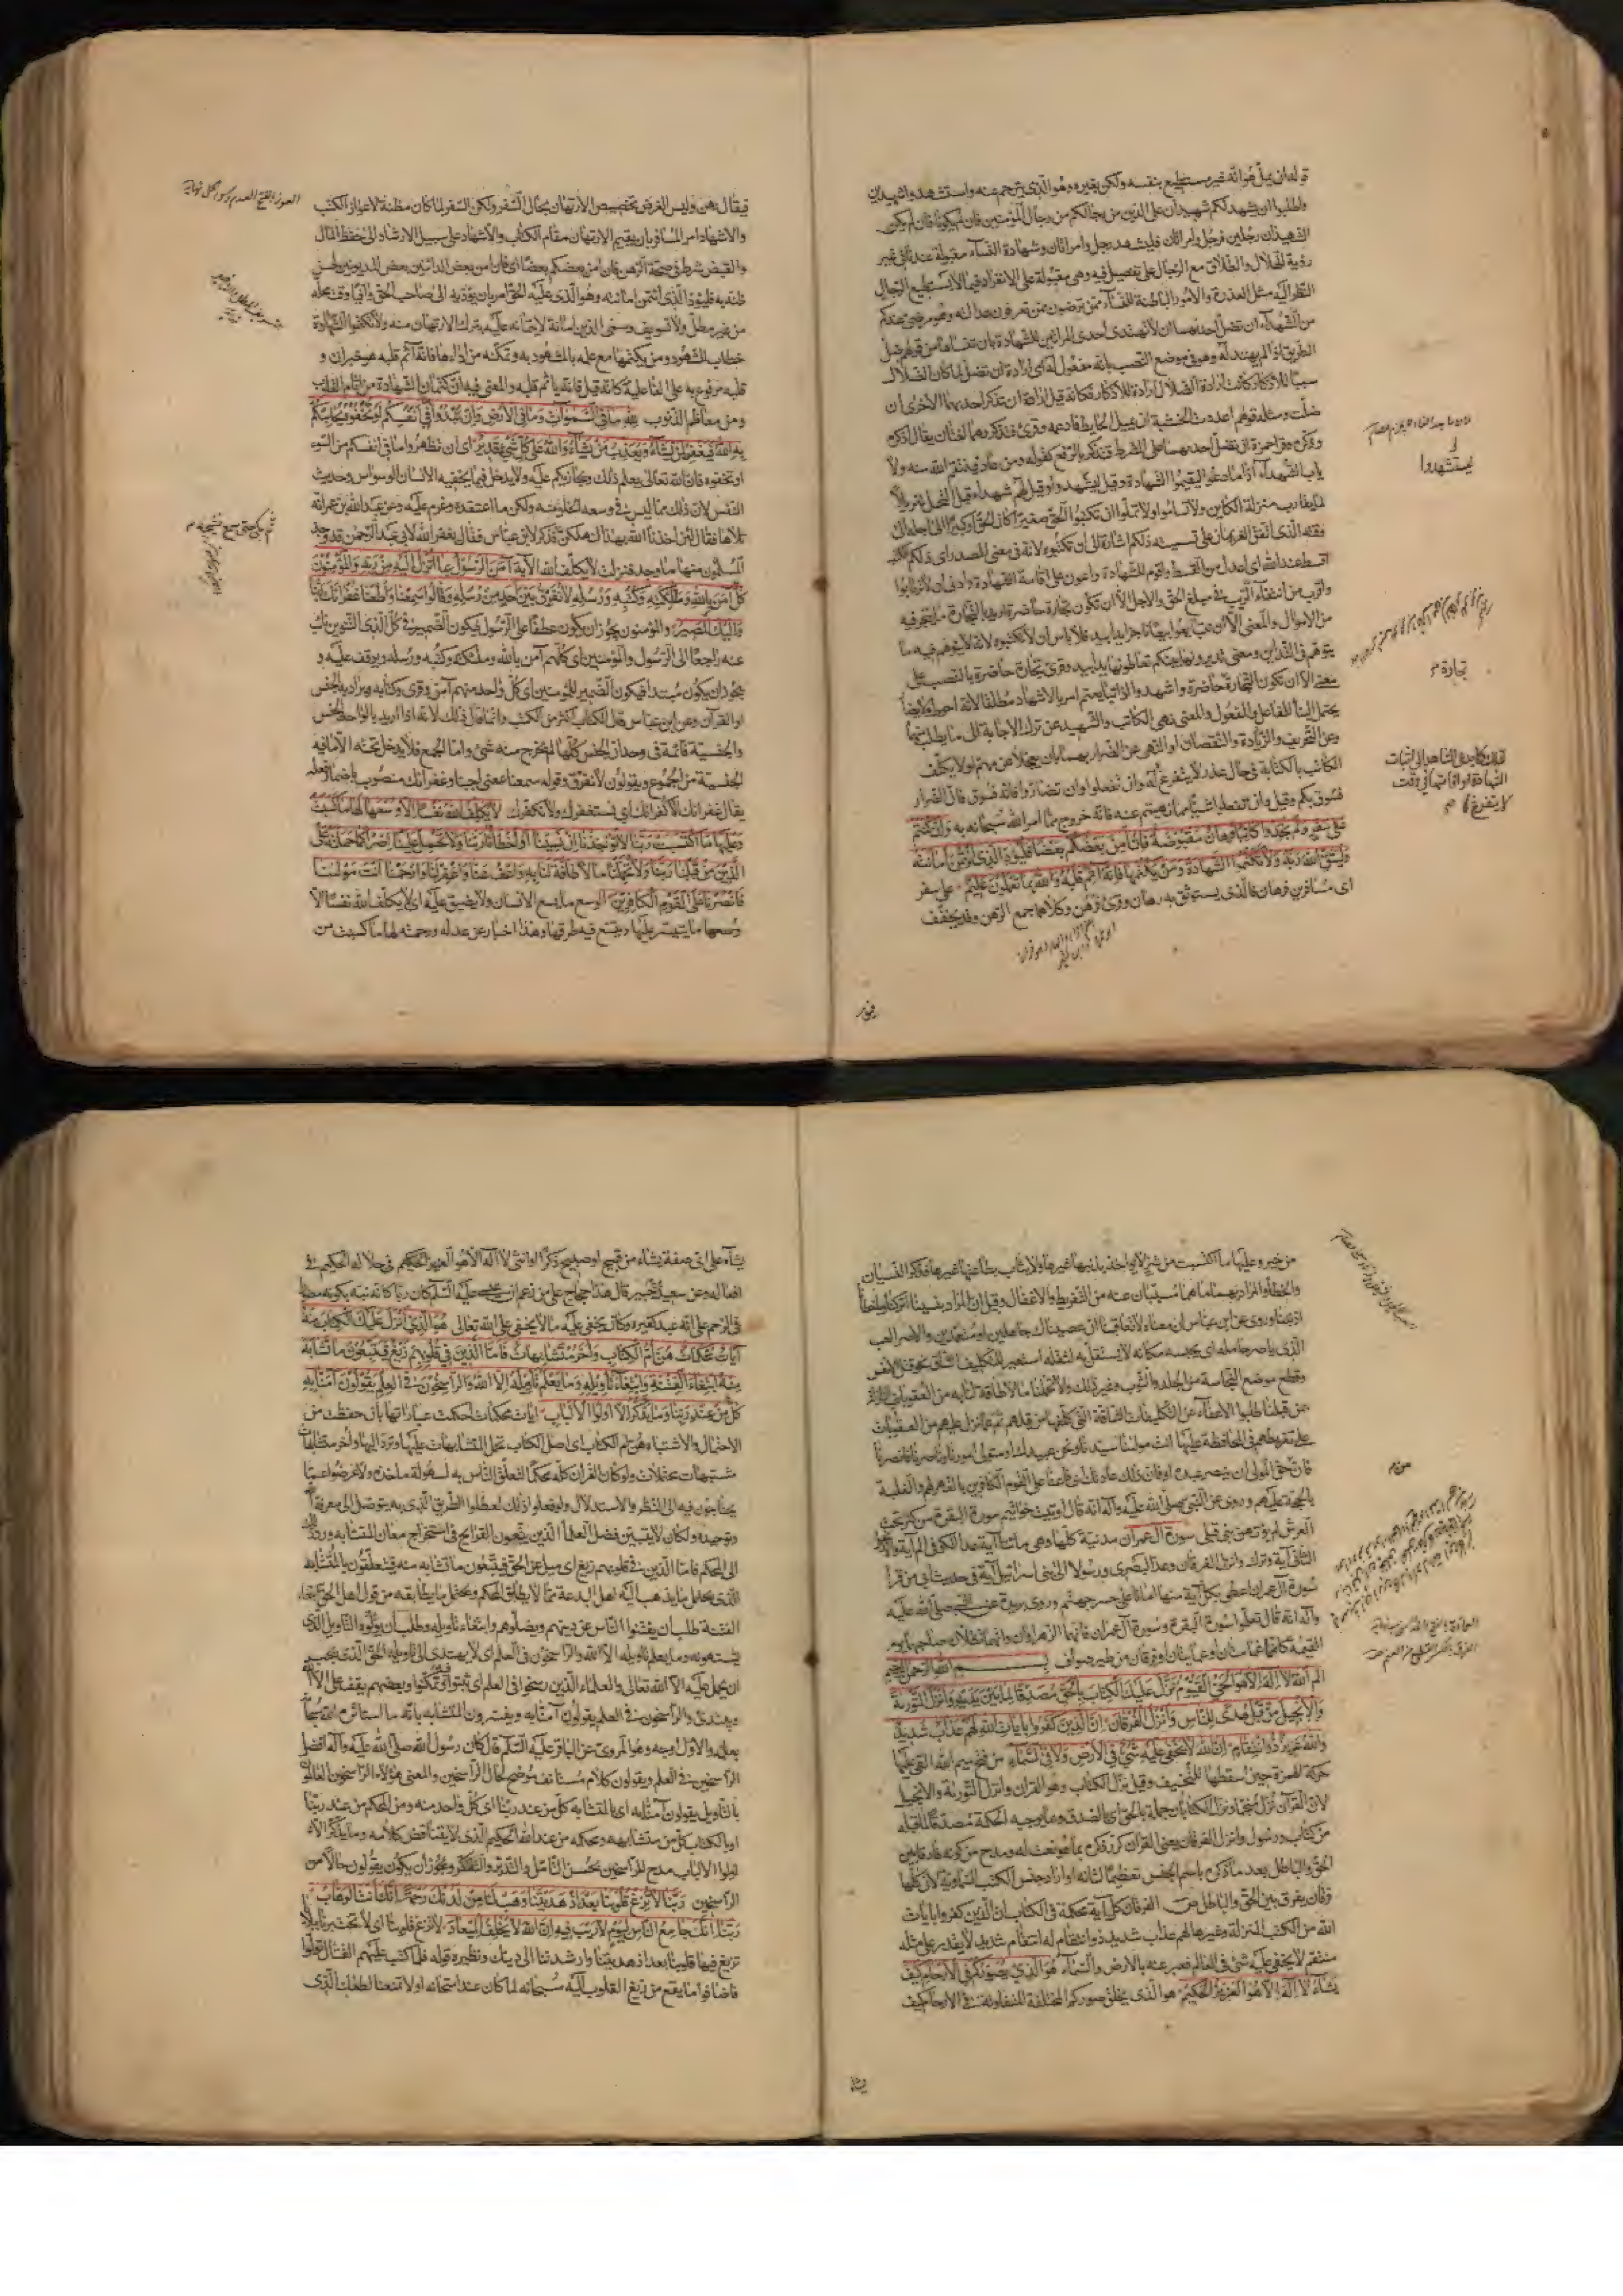 قوله ان يمل هو انه غير مستطيع بنفسه ولكن بغيره وهو الذي يترجم عنه واستشهدوا شهيدين
واطلبوا ان يشهد لكم شهيدان على الدين من رجالكم من رجال المؤمنين فان لم يكونا فان لم يكن
الشهيدان رجلين فرجل وامراتان فليشهد رجل وامراتان وشهادة النساء مقبولة عندنا في غير
رؤية الهلال والطلاق مع الرجال على تفصيل فيه وهي مقبولة على الانفراد فيما لا يستطيع الرجال
النظر اليه مثل العذرة والامور الباطنة للنساء ممن ترضون ممن تعرفون عدالته وهو مرضي عندكم
من الشهداء ان تضل احديهما ان لا تهتدي احدى المراتين للشهادة بان تنساها من قولهم ضل
الطريق اذا لم يهتد له وهو في موضع النصب بانه مفعول له اي ارادة ان تضل لما كان الضلال
سببا للاذكار كانت ارادة الضلال ارادة للاذكار فكانه قيل ارادة ان تذكر احديهما الاخرى ان
ضلت ومثله قولهم اعددت الخشبة ان يميل الحايط فادعمه وقرئ فتذكر وهما لغتان يقال اذكره
وذكره وقرا حمزة ان تضل احديهما على الشرط فتذكر بالرفع كقوله ومن عاد فينتقم الله منه ولا
ياب الشهداء اذا ما دعوا ليقيموا الشهادة وقيل ليستشهدوا وقيل لهم شهداء قبل التحمل تنزيلا
لما يقارب منزلة الكاين ولا تساموا ولا تملوا ان تكتبوا الحق صغيرا كان الحق او كبيرا الى اجله الى
وقته الذي اتفق الغريمان على تسميته ذلكم اشارة الى ان تكتبوه لانه في معنى المصدر اي ذلكم الكتب
اقسط عند الله اي اعدل من القسط واقوم للشهادة واعون على اقامة الشهادة وادنى ان لا ترتابوا
واقرب من انتفاء الريب في مبلغ الحق والاجل الا ان تكون تجارة حاضرة اريد بالتجارة ما يتجر فيه
من الاموال والمعنى الا ان تتبايعوا بيعا ناجزا يدا بيد فلا باس ان لا تكتبوه لانه لا يتوهم فيه ما
يتوهم في التداين ومعنى تديرونها بينكم تعاطونها يدا بيد وقرئ تجارة حاضرة بالنصب على
معنى الا ان تكون التجارة تجارة حاضرة واشهدوا اذا تبايعتم امر بالاشهاد مطلقا لانه احوط ولا يضار
يحتمل البناء للفاعل والمفعول والمعنى نهي الكاتب والشهيد عن ترك الاجابة الى ما يطلب منهما
وعن التحريف والزيادة والنقصان او النهي عن الضرار بهما بان يعجلا عن مهم او لا يكلف
الكاتب بالكتابة في حال عذر لا يتفرغ له وان تفعلوا وان تضاروا فانه فسوق فان الضرار
فسوق بكم وقيل وان تفعلوا شيئا مما نهيتم عنه فانه خروج مما امر الله سبحانه به وان كنتم
على سفر ولم تجدوا كاتبا فرهان مقبوضة فان امن بعضكم بعضا فليؤد الذي اؤتمن امانته
وليتق الله ربه ولا تكتموا الشهادة ومن يكتمها فانه آثم قلبه والله بما تعملون عليم على سفر
اي مسافرين فرهان فالذي يستوثق به رهان وقرئ فرهن وكلاهما جمع الرهن وقد يخفف
يستشهدوا
تجارة م
فيقال رهن وليس الغرض تخصيص الارتهان بحال السفر ولكن السفر لما كان مظنة لاعواز الكتب
والاشهاد امر المسافر بان يقيم الارتهان مقام الكتاب والاشهاد على سبيل الارشاد الى حفظ المال
والقبض شرط في صحة الرهن فان امن بعضكم بعضا اي فان امن بعض الدائنين بعض المديونين لحسن
ظنه به فليؤد الذي اؤتمن امانته وهو الذي عليه الحق امر بان يؤديه الى صاحب الحق وافيا وقت محله
من غير مطل ولا تسويف وسمى الدين امانة لايتمانه عليه بترك الارتهان منه ولا تكتموا الشهادة
خطاب للشهود ومن يكتمها مع علمه بالمشهود به وتمكنه من ادائها فانه آثم قلبه هو خبر ان و
قلبه مرفوع به على الفاعلية كانه قيل فانه ياثم قلبه والمعنى فيه ان كتمان الشهادة من آثام القلب
ومن معاظم الذنوب لله ما في السموات وما في الارض وان تبدوا ما في انفسكم او تخفوه يحاسبكم
به الله فيغفر لمن يشاء ويعذب من يشاء والله على كل شيء قدير اي ان تظهروا ما في انفسكم من السوء
او تخفوه فان الله تعالى يعلم ذلك ويجازيكم عليه ولا يدخل فيما يخفيه الانسان الوسواس وحديث
النفس لان ذلك مما ليس في وسعه الخلو منه ولكن ما اعتقده وعزم عليه وعن عبد الله بن عمر انه
تلاها فقال لئن اخذنا الله بهذا لنهلكن فذكر لابن عباس فقال يغفر الله لابي عبد الرحمن قد وجد
المسلمون منها ما وجد فنزلت لا يكلف الله الآية آمن الرسول بما انزل اليه من ربه والمؤمنون
كل آمن بالله وملئكته وكتبه ورسله لا نفرق بين احد من رسله وقالوا سمعنا واطعنا غفرانك ربنا
واليك المصير والمؤمنون يجوز ان يكون عطفا على الرسول فيكون الضمير في كل الذي التنوين نائب
عنه راجعا الى الرسول والمؤمنين اي كلهم آمن بالله وملئكته وكتبه ورسله ويوقف عليه و
يجوز ان يكون مبتدا فيكون الضمير للمؤمنين اي كل واحد منهم آمن وقرئ وكتابه ويراد به الجنس
او القرآن وعن ابن عباس قال الكتاب اكثر من الكتب وانما قال ذلك لانه اذا اريد بالواحد الجنس
والجنسية قائمة في وحدان الجنس كلها لم يخرج منه شئ واما الجمع فلا يدخل تحته الا ما فيه
الجنسية من الجموع ويقولون لا نفرق وقوله سمعنا معنى اجبنا وغفرانك منصوب باضمار فعله
يقال غفرانك لا كفرانك اي نستغفرك ولا نكفرك لا يكلف الله نفسا الا وسعها لها ما كسبت
وعليها ما اكتسبت ربنا لا تؤاخذنا ان نسينا او اخطانا ربنا ولا تحمل علينا اصرا كما حملته على
الذين من قبلنا ربنا ولا تحملنا ما لا طاقة لنا به واعف عنا واغفر لنا وارحمنا انت مولينا
فانصرنا على القوم الكافرين الوسع ما يسع الانسان ولا يضيق عليه اي لا يكلف الله نفسا الا
وسعها ما يتيسر عليها ويتسع فيه طوقها وهذا اخبار عن عدله ورحمته لها ما كسبت من
من خير وعليها ما اكتسبت من شر لا يؤاخذ بذنبها غيرها ولا يثاب بطاعتها غيرها فذكر النسيان
والخطاء والمراد بهما ما هما مسببان عنه من التفريط والاغفال وقيل ان المراد بنسينا تركنا واخطانا
اذنبنا وروي عن ابن عباس ان معناه لا تعاقبنا ان عصيناك جاهلين او متعمدين والاصر العبء
الذي ياصر حامله اي يحبسه مكانه لا يستقل به لثقله استعير للتكليف الشاق نحو قتل الانفس
وقطع موضع النجاسة من الجلد والثوب وغير ذلك ولا تحملنا ما لا طاقة لنا به من العقوبات النازلة
بمن قبلنا طلبوا الاعفاء عن التكليفات الشاقة التي كلفها من قبلهم ثم عما نزل عليهم من العقوبات
على تفريطهم في المحافظة عليها انت مولينا سيدنا ونحن عبيدك او متولي امورنا وناصرنا فانصرنا
فان حق المولى ان ينصر عبده او فان ذلك عادتك فاعنا على القوم الكافرين بالقهر لهم والغلبة
بالحجة عليهم وروي عن النبي صلى الله عليه وآله انه قال اوتيت خواتيم سورة البقرة من كنز تحت
العرش لم يؤتهن نبي قبلي سورة آل عمران مدنية كلها وهي مائتا آية
سورة آل عمران اعطي بكل آية منها امانا على جسر جهنم وروى بريدة عن النبي صلى الله عليه
وآله انه قال تعلموا سورة البقرة وسورة آل عمران فانهما الزهراوان وانهما تظلان صاحبهما يوم
القيمة كانهما غمامتان او غيايتان او فرقان من طير صواف بسم الله الرحمن الرحيم
الم الله لا اله الا هو الحي القيوم نزل عليك الكتاب بالحق مصدقا لما بين يديه وانزل التورية
والانجيل من قبل هدى للناس وانزل الفرقان ان الذين كفروا بايات الله لهم عذاب شديد
والله عزيز ذو انتقام ان الله لا يخفى عليه شيء في الارض ولا في السماء من فتح ميم الله القى عليها
حركة الهمزة حين اسقطها للتخفيف وقيل نزل الكتاب وهو القرآن وانزل التورية والانجيل
لان القرآن نزل منجما ونزل الكتابان جملة بالحق اي بالصدق وبما يوجبه الحكمة مصدقا لما قبله
من كتاب ورسول وانزل الفرقان يعني القرآن كرر ذكره بما هو نعت له ومدح من كونه فارقا بين
الحق والباطل بعد ما ذكره باسم الجنس تعظيما لشانه او اراد جنس الكتب السماوية لان كلها
فرقان يفرق بين الحق والباطل الفرقان كل آية محكمة في الكتاب ان الذين كفروا بايات
الله من الكتب المنزلة وغيرها لهم عذاب شديد ذو انتقام له انتقام شديد لا يقدر على مثله
منتقم لا يخفى عليه شئ في العالم فعبر عنه بالارض والسماء هو الذي يصوركم في الارحام كيف
يشاء لا اله الا هو العزيز الحكيم هو الذي يخلق صوركم المختلفة المتفاوتة في الارحام كيف
يشاء
يشاء على اي صفة يشاء من قبيح او صبيح ذكرا او انثى لا اله الا هو العزيز الحكيم في جلاله الحكيم في
افعاله وعن سعيد بن جبير قال هذا حجاج على من زعم ان عيسى عليه السلام كان ربا كانه نبه بكونه مصورا
في الرحم على انه عبد كغيره وكان يخفى عليه ما لا يخفى على الله تعالى هو الذي انزل عليك الكتاب منه
آيات محكمات هن ام الكتاب واخر متشابهات فاما الذين في قلوبهم زيغ فيتبعون ما تشابه
منه ابتغاء الفتنة وابتغاء تاويله وما يعلم تاويله الا الله والراسخون في العلم يقولون آمنا به
كل من عند ربنا وما يذكر الا اولوا الالباب آيات محكمات احكمت عباراتها بان حفظت من
الاحتمال والاشتباه هن ام الكتاب اي اصل الكتاب تحمل المتشابهات عليها وترد اليها واخر متشابهات
مشتبهات محتملات ولو كان القرآن كله محكما لتعلق الناس به لسهولة ماخذه ولاعرضوا عما
يحتاجون فيه الى النظر والاستدلال ولو فعلوا ذلك لعطلوا الطريق الذي به يتوصل الى معرفة الله
وتوحيده ولكان لا يتبين فضل العلماء الذين يتعبون القرائح في استخراج معاني المتشابه ورد ذلك
الى المحكم فاما الذين في قلوبهم زيغ اي ميل عن الحق فيتبعون ما تشابه منه فيتعلقون بالمتشابه
الذي يحتمل ما يذهب اليه اهل البدعة مما لا يطابق المحكم ويحتمل ما يطابقه من قول اهل الحق ابتغاء
الفتنة طلب ان يفتنوا الناس عن دينهم ويضلوهم وابتغاء تاويله وطلب ان يؤولوه التاويل الذي
يشتهونه وما يعلم تاويله الا الله والراسخون في العلم اي لا يهتدي الى تاويله الحق الذي يجب
ان يحمل عليه الا الله تعالى والعلماء الذين رسخوا في العلم اي ثبتوا فيه وتمكنوا وبعضهم يقف على الا الله
ويبتدئ والراسخون في العلم يقولون آمنا به ويفسرون المتشابه بانه ما استاثر الله سبحانه
بعلمه والاول اوجه وهو المروي عن الباقر عليه السلم قال كان رسول الله صلى الله عليه وآله افضل
الراسخين في العلم ويقولون كلام مستانف موضح لحال الراسخين والمعنى هؤلاء الراسخون العالمون
بالتاويل يقولون آمنا به اي بالمتشابه كل من عند ربنا اي كل واحد منه ومن المحكم من عند ربنا
او بالكتاب كل من متشابهه ومحكمه من عند الله الحكيم الذي لا يتناقض كلامه وما يذكر الا
اولوا الالباب مدح للراسخين بحسن التامل والتدبر والتفكر ويجوز ان يكون يقولون حالا من
الراسخين ربنا لا تزغ قلوبنا بعد اذ هديتنا وهب لنا من لدنك رحمة انك انت الوهاب
ربنا انك جامع الناس ليوم لا ريب فيه ان الله لا يخلف الميعاد لا تزغ قلوبنا اي لا تختبرنا ببلايا
تزيغ فيها قلوبنا بعد اذ هديتنا وارشدتنا الى دينك ونظيره قوله فلما كتب عليهم القتال تولوا
فاضافوا ما يقع من زيغ القلوب اليه سبحانه لما كان عند امتحانه او لا تمنعنا الطافك الذي